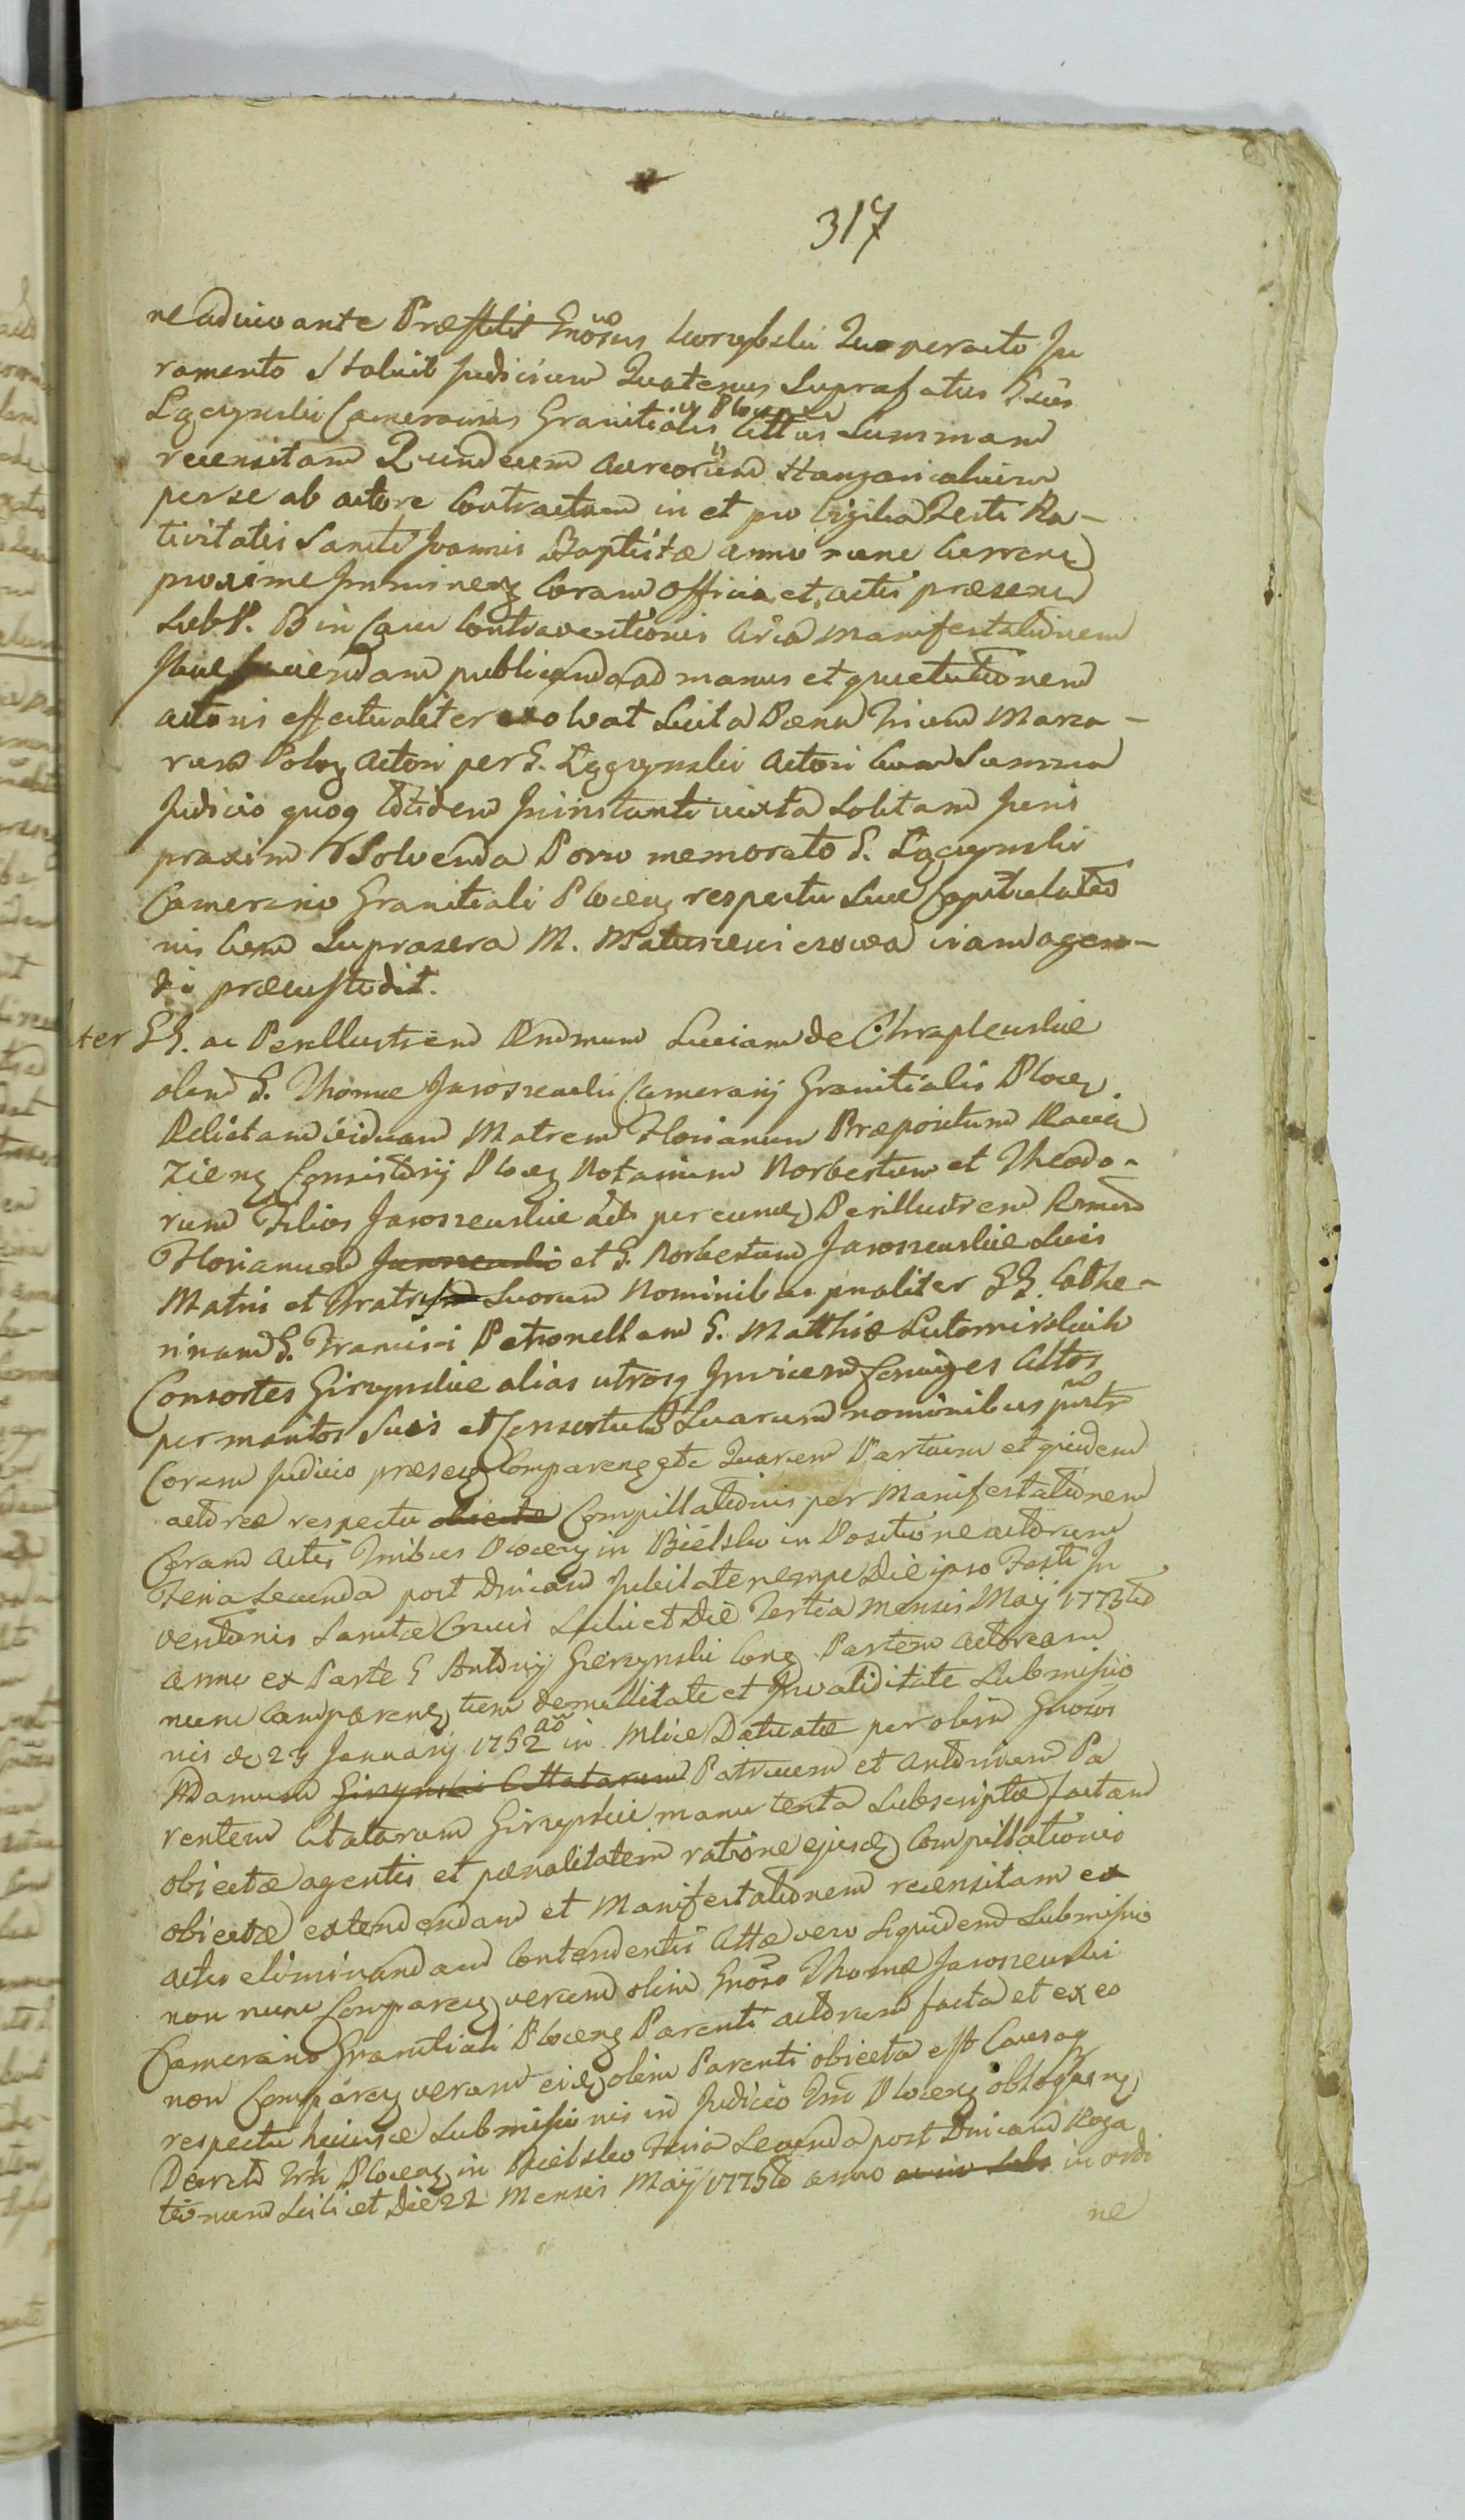 317
ne adiuvante Præstitit Gnosus Korzybski Quo peracto Ju
ramento Statuit Judicium Quatenus Suprafatus Gsus
Łączynski Camerarius Granitialis Plocen Cittus Summam
recensitam Quindecem aureorum Hungaricalium
per se ab actore Contractam in et pro Vigilia Festi Na-
tivitatis Sancti Joannis Baptistæ anno nunc Curren
proxime Imminen Coram Officio et actis præsen
Sub P. B in Casu Contraventionis Cria Manifestationem
suæ faciendam publicanda ad manus et quietationem
actoris effectualiter exolvat Luita Pæna Trium Marca-
rum Polon Actori per G. Łączynski Actori Cum Summa
Judicio quoq totidem Ininstanti iuxta Solitam Juris
praxim Solvenda Porro memorato G. Łączynski
Camerario Granitiali Plocen respectu Suæ Capitulatio
nis Cum Suprasera M. Matuszewiczowa viam agen-
di præcustodit.
ter GG. ac Perillustrem Rndmum Luciam de Chrapleuskie
olim G. Thomæ Jaroszewski Camerarij Granitialis Plocen
Relictam Viduam Matrem Florianum Præpositum Raci
zien Consistorij Plocen Notarium Norbertum et Theodo-
rum Filios Jaroszewskie act per eund Perillustrem Rnmum
Florianum Jaroszewski et G. Norbertum Jaroszewskie Suis
Matris et Fratrum Suorum Nominibus pnaliter GG. Cathe-
rinam G. Francisci Petronellam G. Matthiæ Lutomirskich
Consortes Girzynskie alias utrosq Invicem Coniuges Cittos
per maritos Suis et Consortum Suarum nominibus
Coram Judicio præsen Comparen etc Quarum Partium et quidem
actoreæ respectu obiecta Compillationis per Manifestationem
Coram Actis Trribus Plocen in Bielsko in Positione actorum
Feria Secunda post Dnicam Jubilate nempe Die ipso Festi In
ventionis Sanctæ Crucis Scilicet Die Tertia Mensis Maij 1773tio
anno ex Parte G Antonij Gierzynski Con Partem Actoream
nunc Comparen tum de nullitate et Invaliditate Submissio
nis de 23 Januarij 1752 ao in Mlice Datuatæ per olim Gnosos
Adamum Girzynski Cittatarum Patruum et Antonium Pa
rentem Citatarum Girzynskie manu tenta Subscriptæ factam
obiectæ agentis et pænalitatem ratione ejusd Compillationis
obiectæ extendendam et Manifestationem recensitam ex
actis eliminandam Contendentis Cittæ vero Siquidem Submissio
non nunc Comparen verum olim Gnoso Thomæ Jaroszewski
Camerario Granitiali Plocen Parenti actorum facta et ex eo
non Comparen verum eid olim Parenti obiecta est Causaq
respectu huiusce Submissionis in Judicio Trri Plocen
Decreto Trri Plocen in Bielsko Feria Secunda post Dnicam Roga
tionum Scilicet Die 22 Mensis Maij 1775to anno in ordi
ne